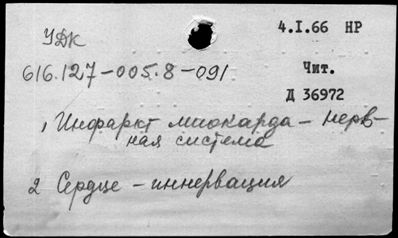 УДК
4.I.66 НР
616.127-005.8-091
Чит.
Д 36972
1 Инфаркт миокарда - нерв-
ная система
2 Сердце - иннервация